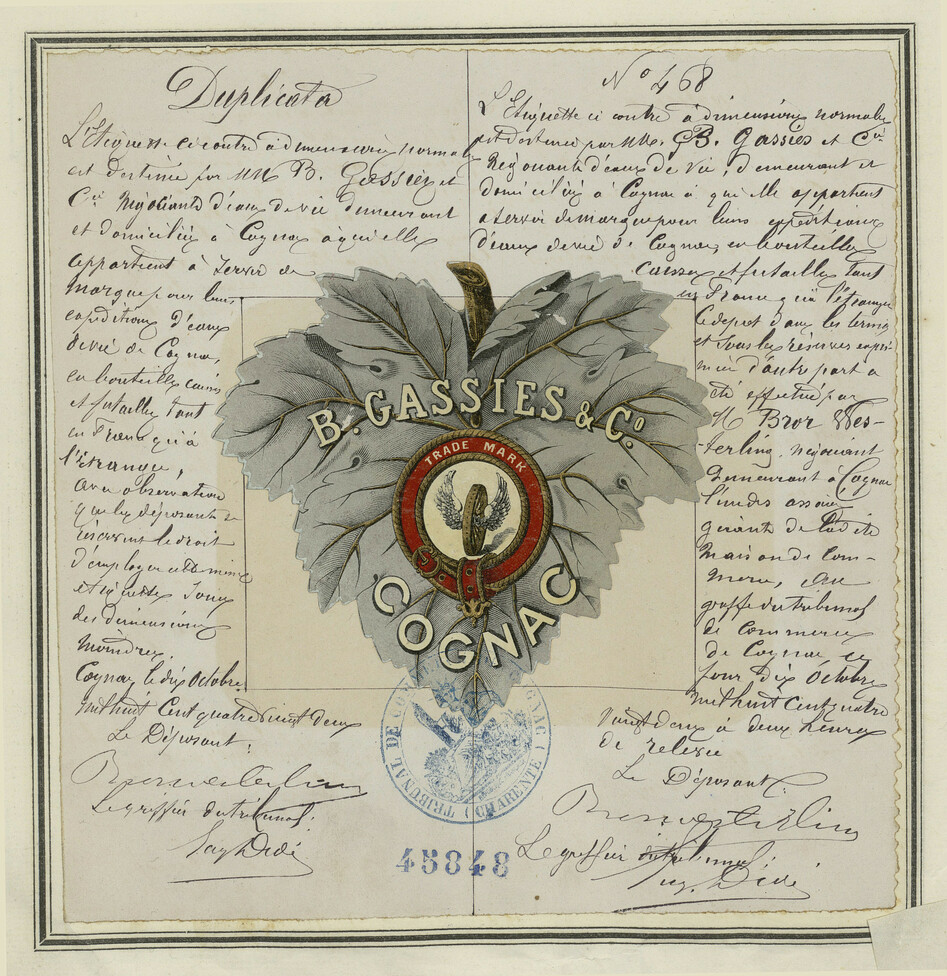 Duplicata
L'Etiquette ci contre à dimensions normales
est destinée par MM B. Gassies et
Cie Négociants d'eaux de vie demeurant
et domiciliés à Cognac à qui elle
appartient à servir de
marque pour leurs
expéditions d'eaux
de vie de Cognac,
en bouteilles caisses
et futailles tant
en France qu'à
l'étranger,
avec observation
que les déposants se
réservent le droit
d'employer cette même
etiquette sous
des dimensions
moindres.
Cognac le dix Octobre
mil huit Cent quatre vingt deux
Le Déposant:
Bror Westerling
Le greffier du tribunal:
Eug. Didi
No 468
L'Etiquette ci contre à dimensions normales
est destinée par MM. B. Gassies et Cie
Négociants d'eaux de vie, demeurant et
domiciliés à Cognac à qui elle appartient
à servir de marque pour leurs expéditions
d'eaux de vie de Cognac, en bouteilles
caisses et futailles tant
en France qu'à l'étranger
Le dépot dans les termes
et sous les réserves expri-
mées d'autre part a
été effectué par
M Bror Wes-
terling, négociant
demeurant à Cognac
l'un des associés
gérants de la dite
Maison de Com-
merce, au
greffe du tribunal
de Commerce
de Cognac ce
jour dix Octobre
mil huit cent quatre
vingt deux à deux heures
de relevée
Le Déposant
Bror Westerling
Le greffier du tribunal:
Eug. Didi
B. GASSIES & Co.
TRADE MARK
COGNAC
TRIBUNAL DE COGNAC (CHARENTE)
45848